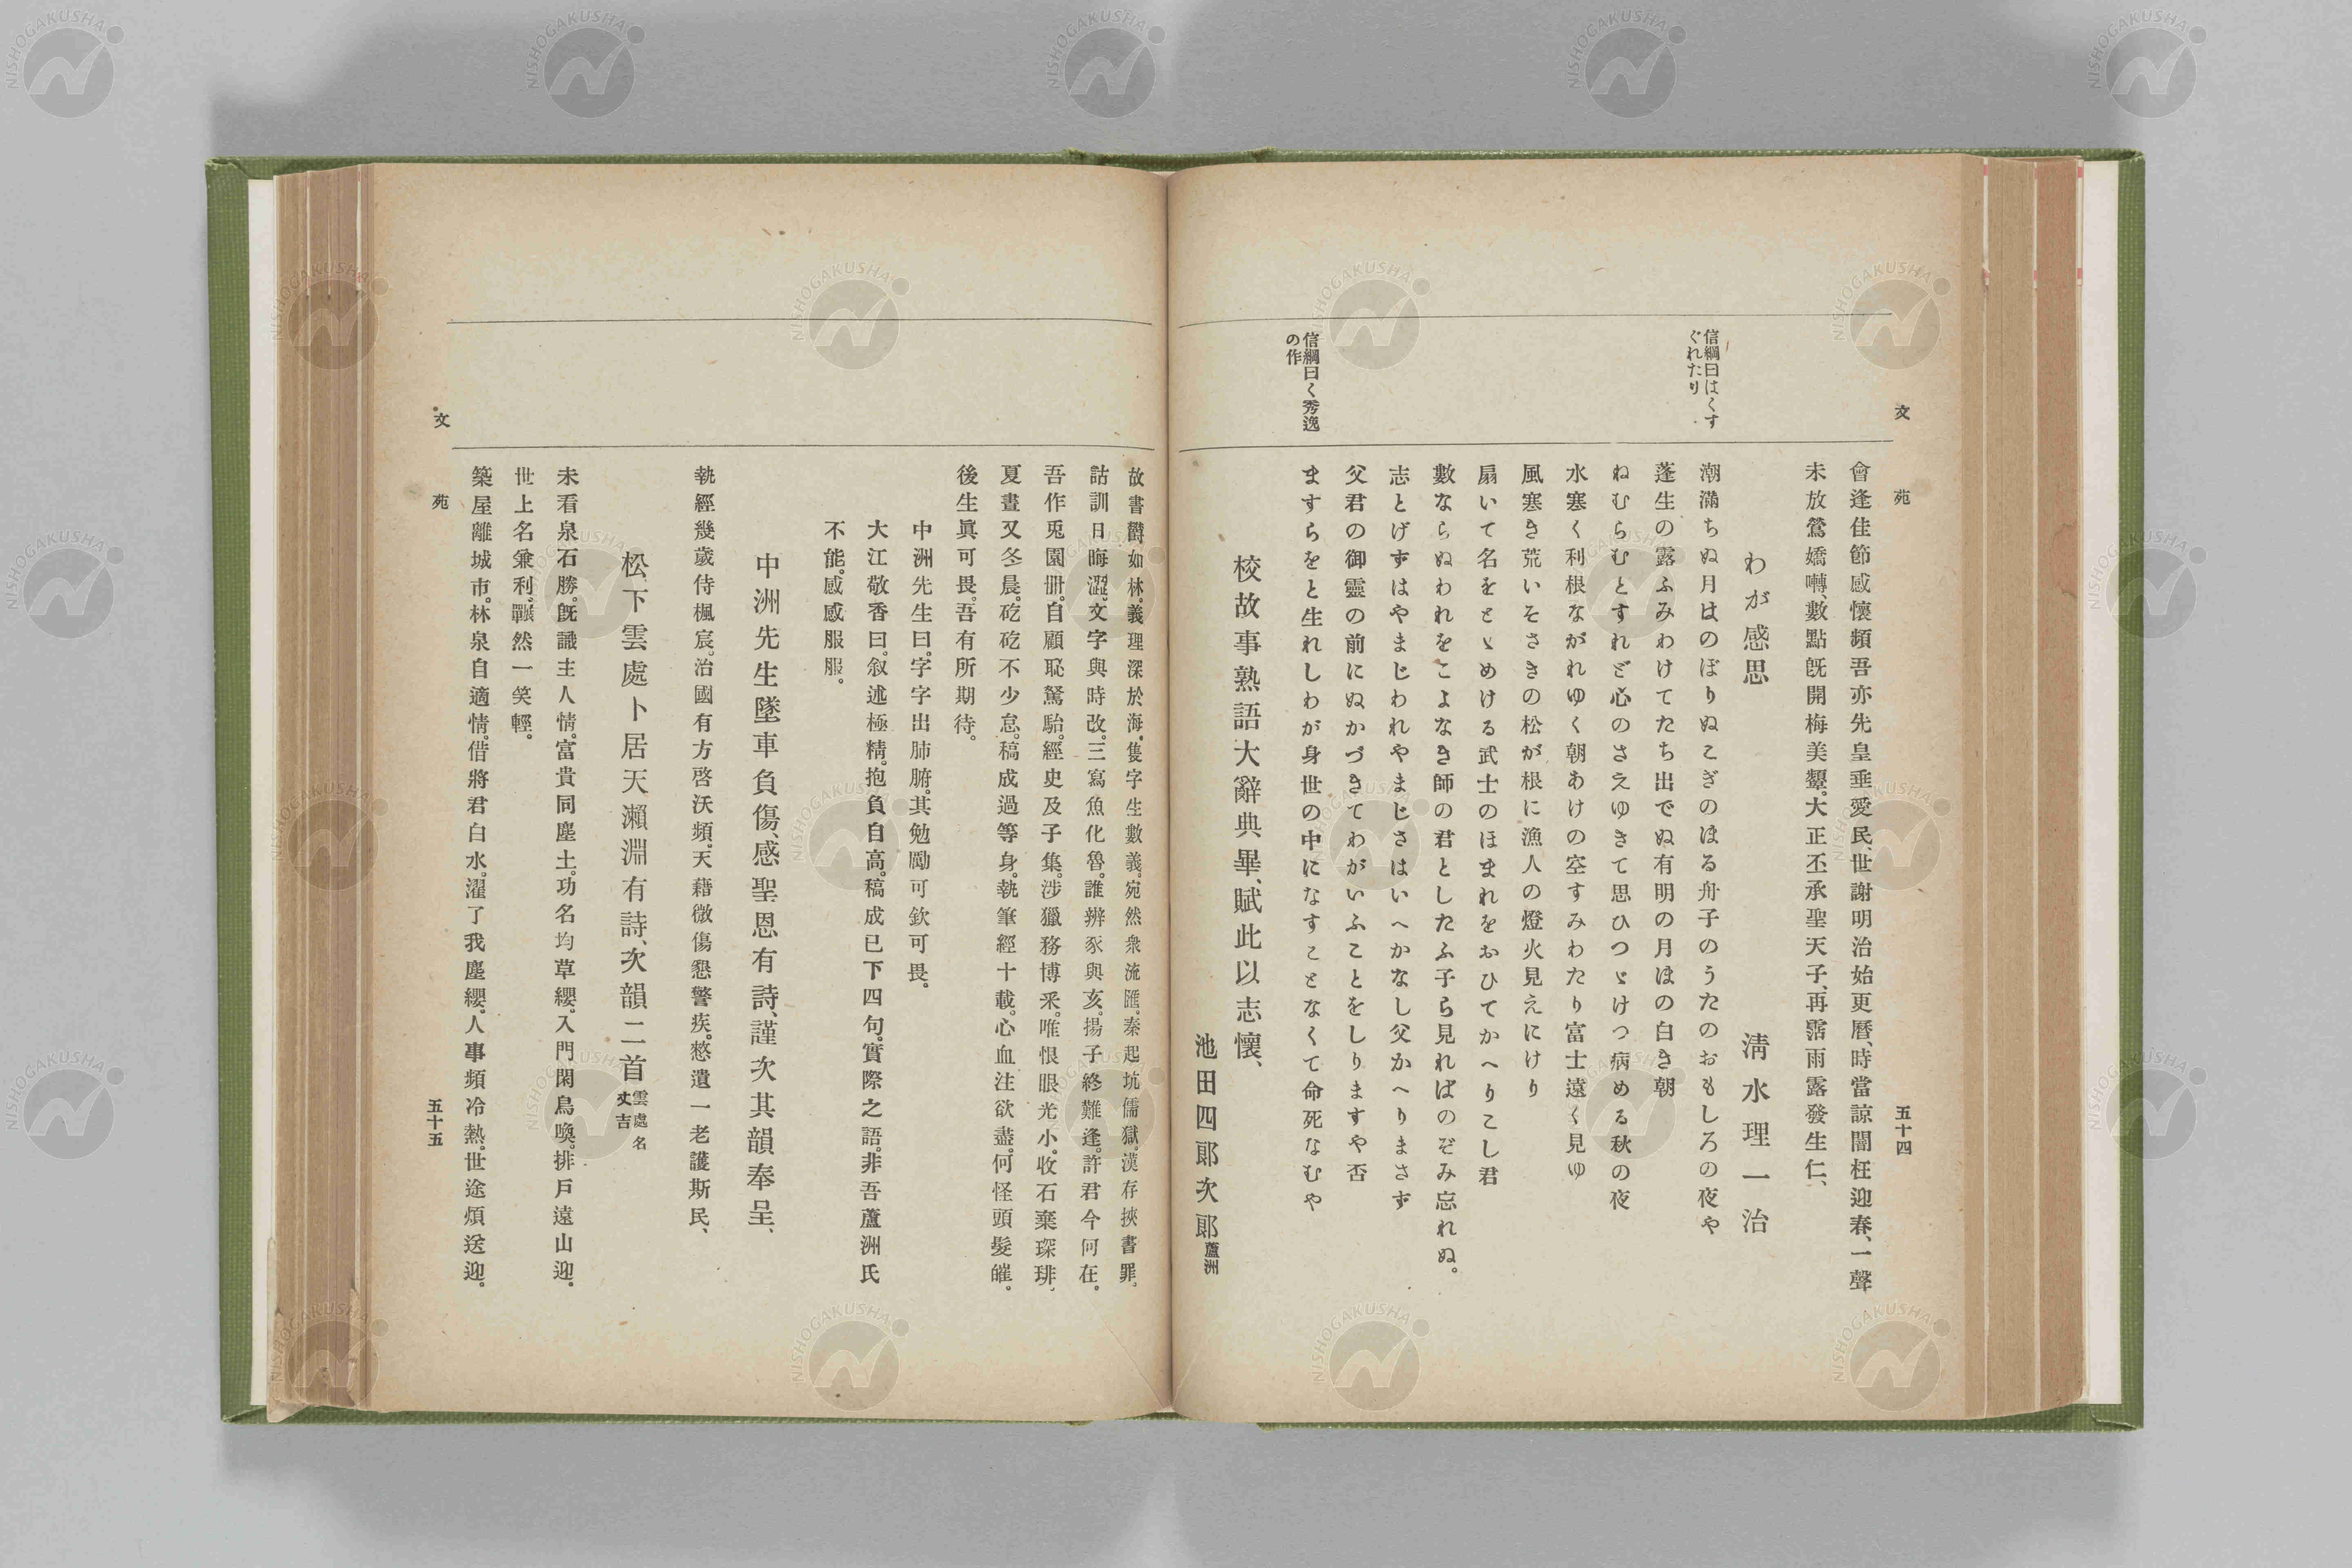 文苑
五十四
會逢佳節感懷頻吾亦先皇垂愛民、世謝明治始更曆、時當諒闇枉迎春、一聲
未放鶯嬌囀、數點既開梅美顰。大正丕承聖天子、再霑雨露發生仁、
わが感思
淸水理一治
信綱曰はくす
ぐれたり
潮滿ちぬ月はのぼりぬこぎのはる舟子のうたのおもしろの夜や
蓬生の露ふみわけてたち出でぬ有明の月ほの白き朝
ねむらむとすれど心のさえゆきて思ひつゞけつ病める秋の夜
水寒く利根ながれゆく朝あけの空すみわたり富士遠く見ゆ
風寒き荒いそさきの松が根に漁人の燈火見えにけり
扇いて名をとゞめける武士のほまれをおひてかへりこし君
數ならぬわれをこよなき師の君としたふ子ら見ればのぞみ忘れぬ。
志とげずはやまじわれやまじさはいへかなし父かへりまさず
父君の御靈の前にぬかづきてわがいふことをしりますや否
信綱曰く秀逸
の作
ますらをと生れしわが身世の中になすことなくて命死なむや
校故事熟語大辭典畢、賦此以志懷、
池田四郞次郞蘆洲
故書欝如林。義理深於海。隻字生數義。宛然衆流匯。秦起坑儒獄。漢存挾書罪。
詁訓日晦澀。文字與時改。三寫魚化魯。誰辨豕與亥。揚子終難逢。許君今何在。
吾作兎園册。自顧恥駑駘。經史及子集。涉獵務博采。唯恨眼光小。收石棄琛琲、
夏晝又冬晨。矻矻不少怠。稿成過等身。執筆經十載。心血注欲盡。何怪頭髮皠。
後生眞可畏。吾有所期待。
中洲先生曰。字字出肺腑。其勉勵可欽可畏。
大江敬香曰。叙述極精。抱負自高。稿成已下四句。實際之語。非吾蘆洲氏
不能。感感服服。
中洲先生墜車負傷、感聖恩有詩、謹次其韻奉呈、
執經幾歲侍楓宸。治國有方啓沃頻。天藉微傷懇警疾。憖遺一老護斯民、
松下雲處卜居天瀨淵有詩、次韻二首雲處名丈吉
未看泉石勝。既識主人情。富貴同塵土。功名均草纓。入門閑鳥喚。排戶遠山迎。
世上名兼利。囅然一笑輕。
築屋離城市。林泉自適情。借將君白水。濯了我塵纓。人事頻冷熱。世途煩送迎。
文苑
五十五
NISHOGAKUSHA